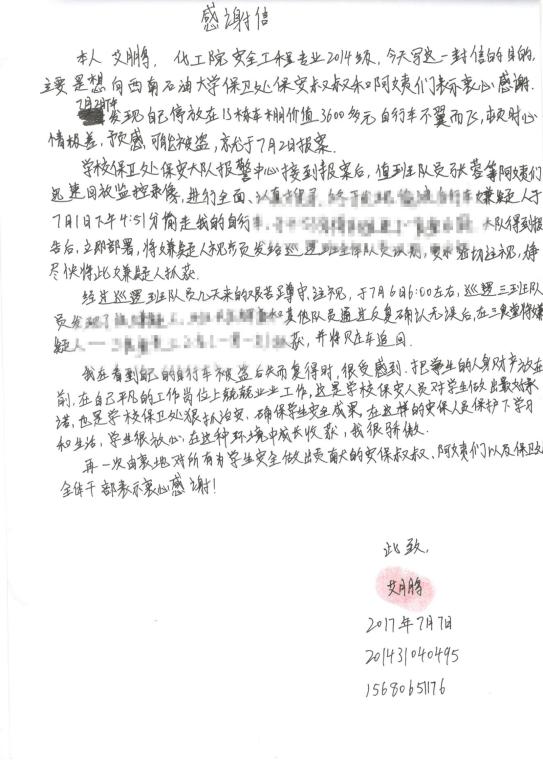 感谢信
本人艾月鹏，化工院安全工程专业2014级，今天写这一封信的目的，
主要是想向西南石油大学保卫处保安叔叔和阿姨们表示衷心感谢.
7月2日下午
发现自己停放在15栋车棚价值3600多元自行车不翼而飞，顿时心
情极差，预感可能被盗，就于7月2日报案.
学校保卫处保安大队报警中心接到报案后，值班队员张蓉等阿姨们
迅速回放监控录像，进行全面、认真 嫌疑人于
7月1日下午4:51分偷走我的自行车. 大队得到报
告后，立即部署，将嫌疑人 发给巡逻班 密切注视，争
尽快将此嫌疑人抓获.
经过巡逻班队员几天来的艰苦蹲守，注视，于7月6日6:00左右，巡逻三班队
员发现了 和其他队员通过反复确认无误后，在三食堂将嫌
疑人 获，并将该车追回.
我在看到自己的自行车被盗后失而复得时，很受感动.把学生的人身财产放在
前，在自己平凡的工作岗位上兢兢业业工作，这是学校保安人员对学生做出最好承
诺，也是学校保卫处狠抓治安、确保学生安全成果，在这样的安保人员保护下学习
和生活，学生很放心，在这种环境中成长收获，我很骄傲.
再一次由衷地对所有为学生安全做出贡献的安保叔叔、阿姨们以及保卫处
全体干部表示衷心感谢！
此致，
艾月鹏
2017年7月7日
201431040495
15680651176